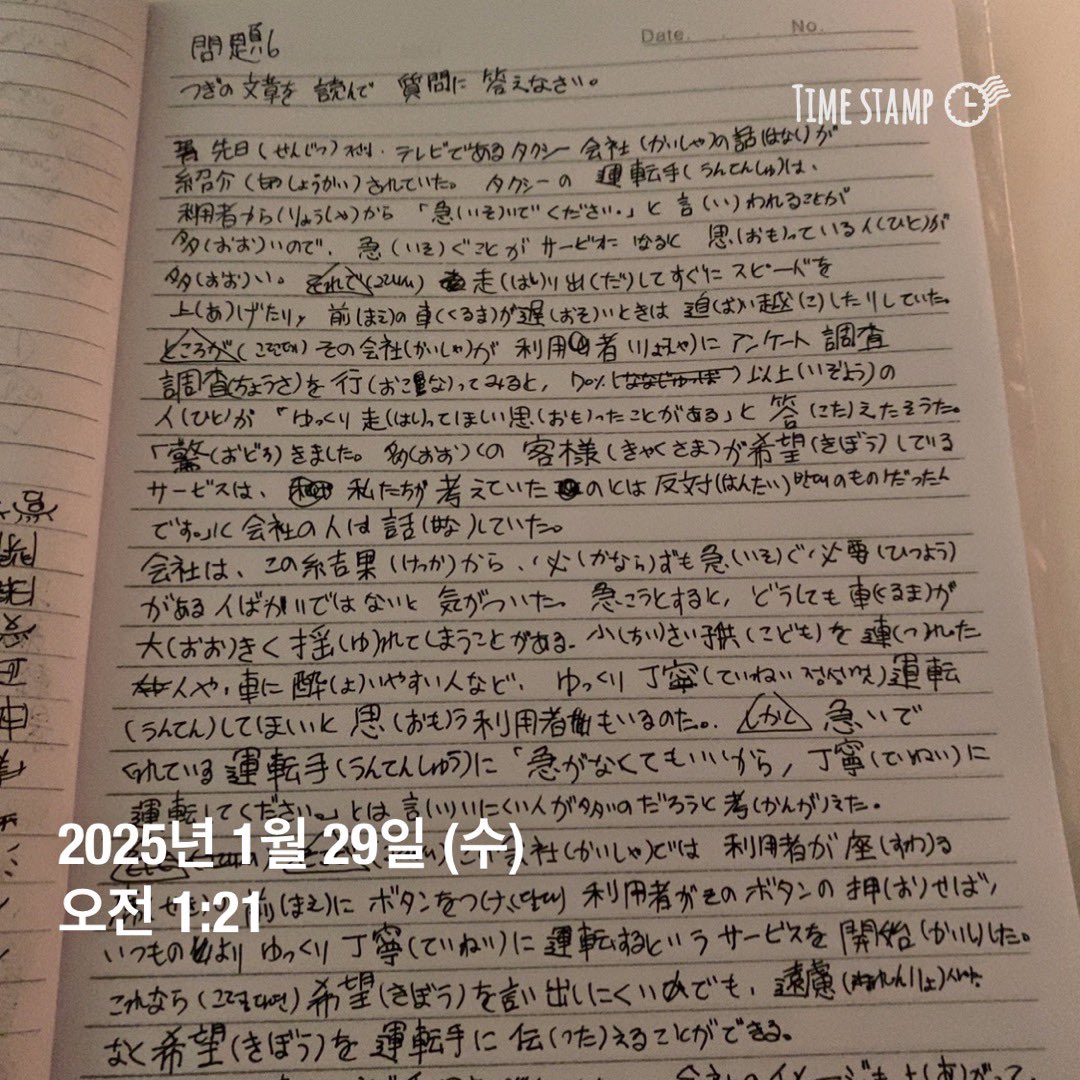 Date. No.
TIME STAMP
問題6
つぎの文章を 読んで 質問に 答えなさい。
先日(せんじつ) テレビであるタクシー会社(かいしゃ)の話(はなし)が
紹介(しょうかい)されていた。 タクシーの 運転手(うんてんしゅ)は、
利用者から(りようしゃ)から 「急(いそ)いでください。」と 言(い)われることが
多(おお)いので、 急(いそ)ぐことが サービスに なると 思(おも)っている人(ひと)が
多(おお)い。 それで 走(はし)り出(だ)してすぐに スピードを
上(あ)げたり, 前(まえ)の車(くるま)が遅(おそ)いときは 追(お)い越(こ)したりしていた。
ところが その会社(かいしゃ)が 利用者 に アンケート 調査
調査(ちょうさ)を 行(おこな)ってみると, 70% 以上(いぞよう)の
人(ひと)が 「ゆっくり 走(はし)ってほしい思(おも)ったことがある」と 答(こた)えたそうだ。
「驚(おどろ)きました。 多(おお)くの 客様(きゃくさま)が希望(きぼう)している
サービスは、 私たちが 考えていた のとは 反対(はんたい) のものだったん
です。」と 会社の人は 話(はな)していた。
会社は、この結果(けっか)から、必(かなら)ずも急(いそ)ぐ必要(ひつよう)
がある人ばかりではないと 気がついた。 急ごうとすると, どうしても 車(くるま)が
大(おお)きく 揺(ゆ)れてしまうことがある. 小(ちい)さい子供(こども)を 連(つ)れた
人や、車に 酔(よ)いやすい人など、 ゆっくり 丁寧(ていねい )運転
(うんてん)してほしいと 思(おも)う利用者 もいるのだ。 しかし 急いで
くれている 運転手(うんてんしゅう)に「急がなくてもいいから, 丁寧(ていねい)に
運転してください。」とは 言(い)いにくい人が多いのだろうと 考(かんが)えた。
会社(かいしゃ)では 利用者が 座(すわ)る
前(まえ)に ボタンをつけ、 利用者がそのボタンの 押(お)せば,
いつもの より ゆっくり 丁寧(ていねい)に 運転するというサービスを 開始(かいし)した。
これなら 希望(きぼう)を言い出しにくい でも, 遠慮
なく希望(きぼう)を 運転手に 伝(つた)えることができる。
2025년 1월 29일 (수)
오전 1:21